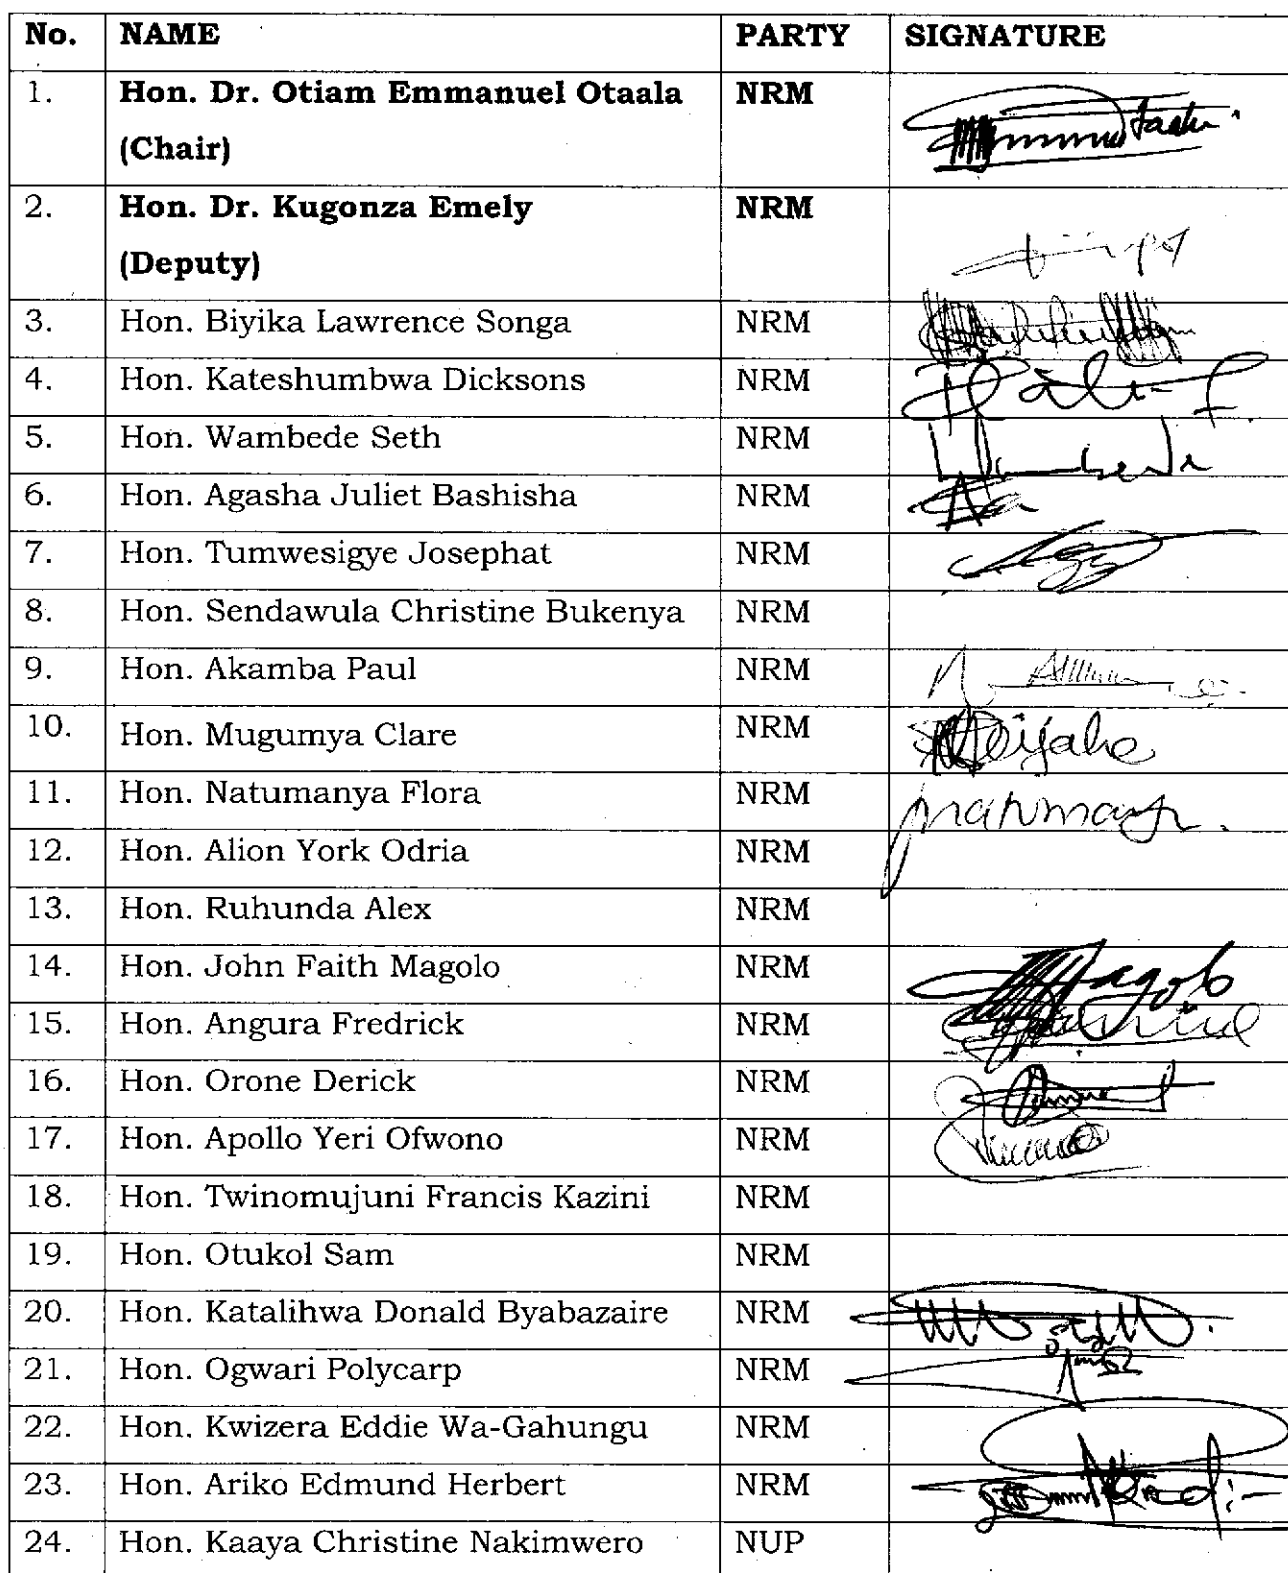 No. NAME PARTY SIGNATURE
1. Hon. Dr. Otiam Emmanuel Otaala NRM
(Chair)
2. Hon. Dr. Kugonza Emely NRM
(Deputy)
3. Hon. Biyika Lawrence Songa NRM
4. Hon. Kateshumbwa Dicksons NRM
5. Hon. Wambede Seth NRM
6. Hon. Agasha Juliet Bashisha NRM
7. Hon. Tumwesigye Josephat NRM
8. Hon. Sendawula Christine Bukenya NRM
9. Hon. Akamba Paul NRM
10. Hon. Mugumya Clare NRM
11. Hon. Natumanya Flora NRM
12. Hon. Alion York Odria NRM
13. Hon. Ruhunda Alex NRM
14. Hon. John Faith Magolo NRM
15. Hon. Angura Fredrick NRM
16. Hon. Orone Derick NRM
17. Hon. Apollo Yeri Ofwono NRM
18. Hon. Twinomujuni Francis Kazini NRM
19. Hon. Otukol Sam NRM
20. Hon. Katalihwa Donald Byabazaire NRM
21. Hon. Ogwari Polycarp NRM
22. Hon. Kwizera Eddie Wa-Gahungu NRM
23. Hon. Ariko Edmund Herbert NRM
24. Hon. Kaaya Christine Nakimwero NUP